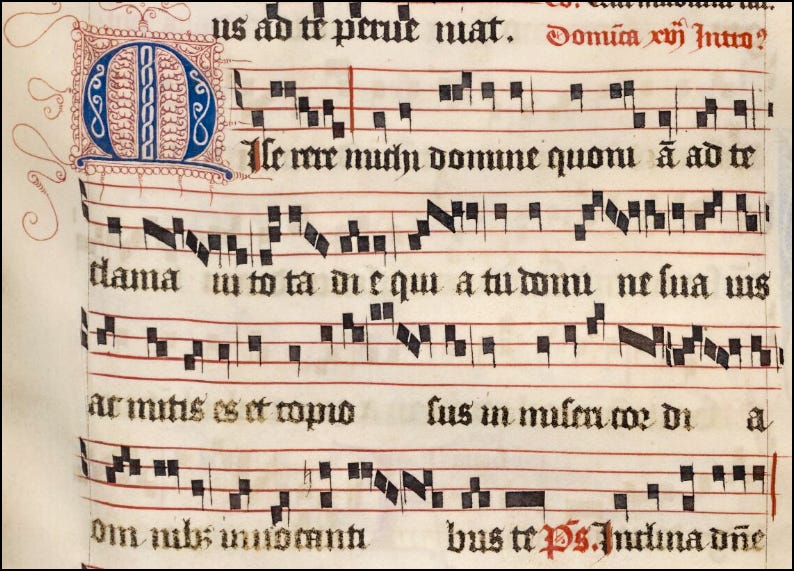 us ad te perue niat.
Domĩca xvj Intro?
MIse rere michi domine quoni ā ad te
clama ui to ta di e qui a tu domi ne sua uis
ac mitis es et copio sus in miseri cor di a
om nibꝫ inuocanti bus te Ps. Inclina dñe